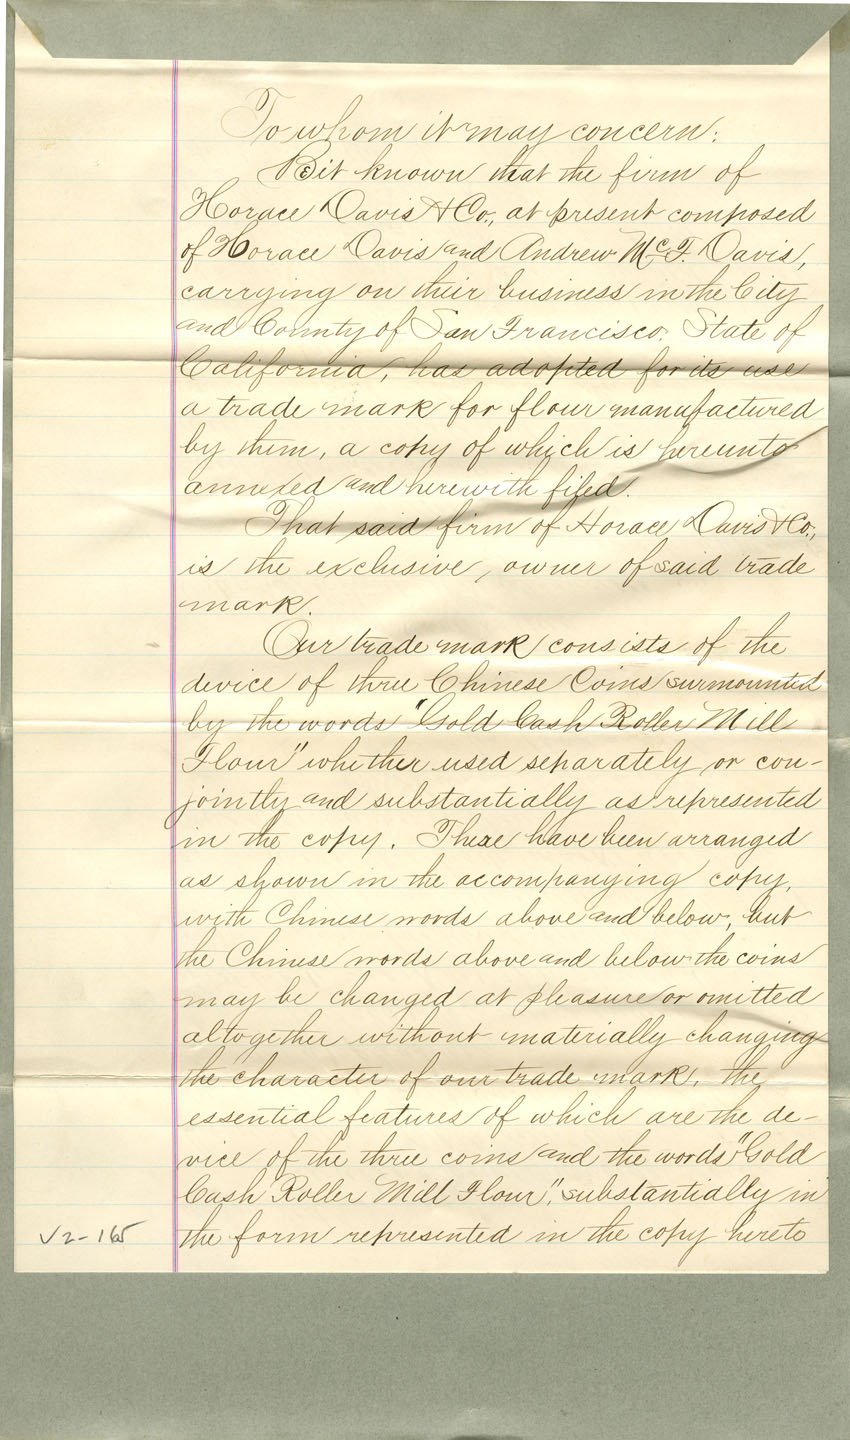 To whom it may concern:
Beit known that the firm of
Horace Davis & Co., at present composed
of Horace Davis and Andrew McF. Davis,
carrying on their business in the City
and County of San Francisco, State of
California, has adopted for its use
a trade mark for flour manufactured
by them, a copy of which is hereunto
annexed and herewith filed.
That said firm of Horace Davis & Co.,
is the exclusive, owner of said trade
mark.
Our trade mark consists of the
device of three Chinese Coins surmounted
by the words "Gold Cash Roller Mill
Flour" whether used separately or con-
jointly and substantially as represented
in the copy. These have been arranged
as shown in the accompanying copy,
with Chinese words above and below, but
the Chinese words above and below the coins
may be changed at pleasure or omitted
altogether without materially changing
the character of our trade mark, the
essential features of which are the de-
vice of the three coins and the words "Gold
Cash Roller Mill Flour", substantially in
the form represented in the copy hereto
V2-165